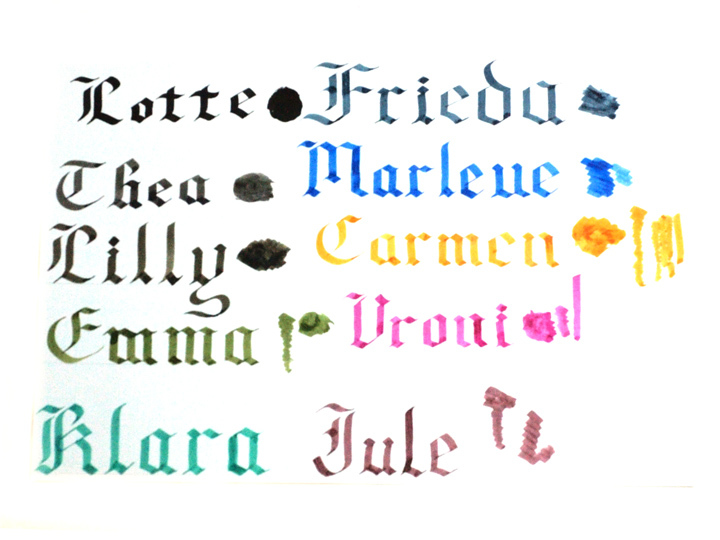 Lotte Frieda
Thea Marlene
Lilly Carmen
Emma Vroni
Klara Jule